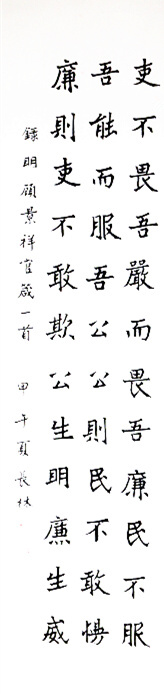 吏不畏吾嚴而畏吾廉民不服
吾能而服吾公公則民不敢慢
廉則吏不敢欺公生明廉生威
錄明顧景祥官箴一首 甲午夏長林